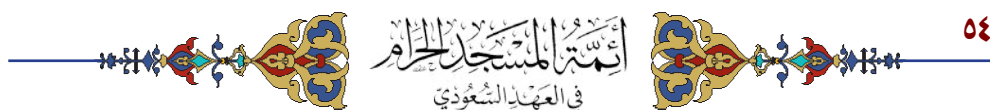 ٥٤
أَئِمَّةُ المَسْجِدِ الحَرَامِ
فِي العَهْدِ السُّعُودِيّ